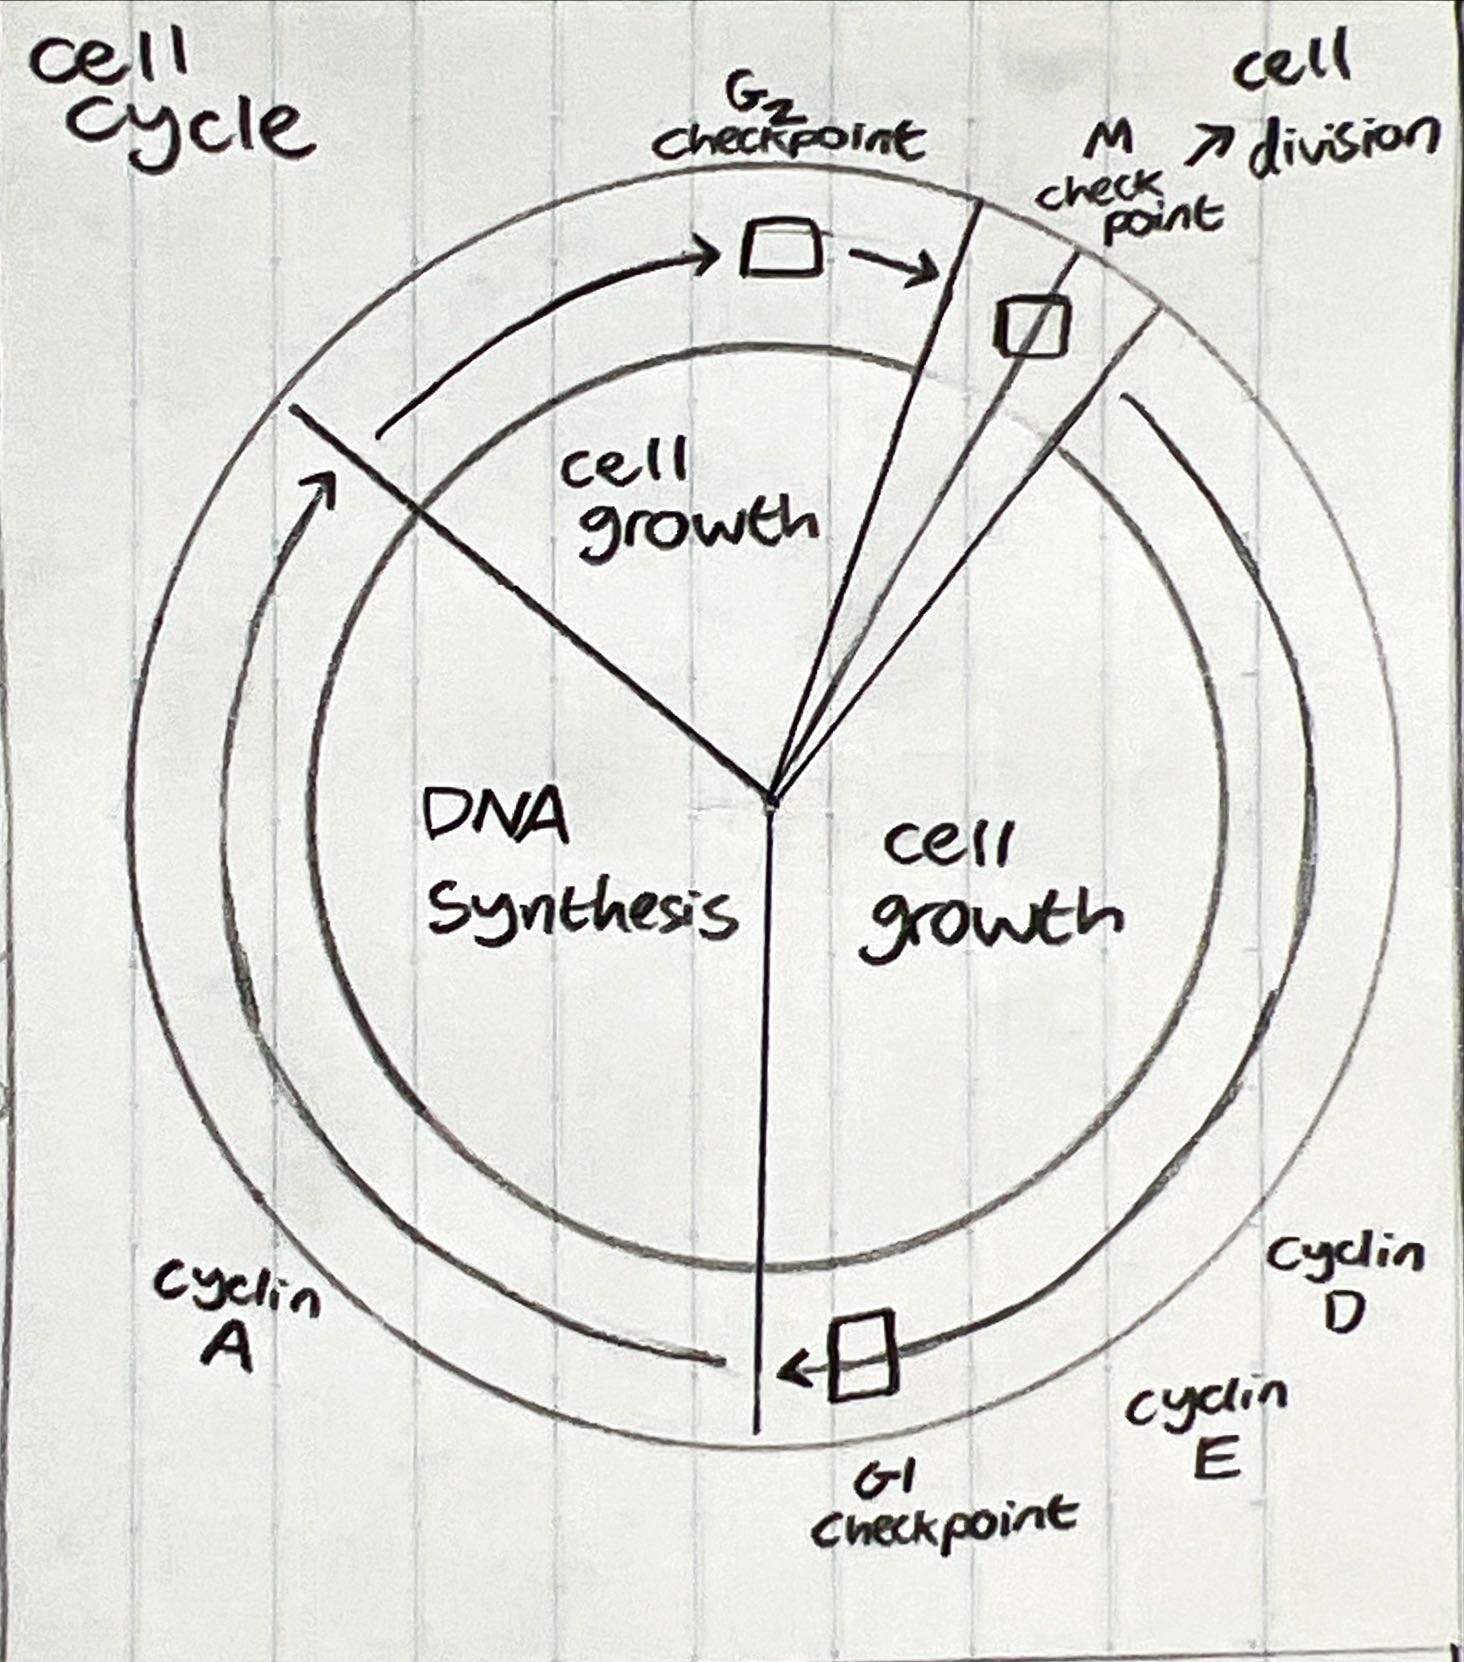 cell
cycle
G2
checkpoint
M
check
point
↗ cell
division
cell
growth
DNA
Synthesis
cell
growth
cyclin
A
cyclin
D
cyclin
E
G1
checkpoint